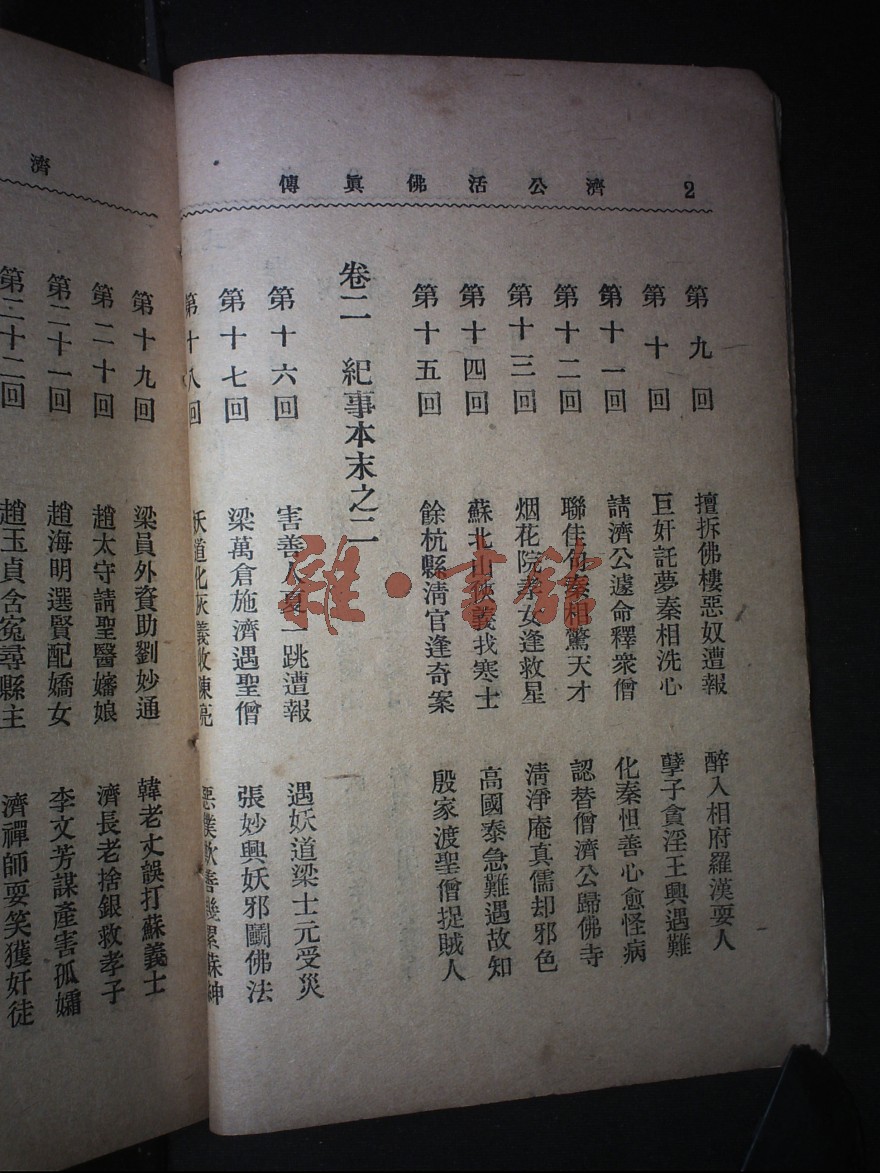 濟公活佛眞傳 2
第九回 擅拆佛樓惡奴遭報 醉入相府羅漢耍人
第十回 巨奸託夢秦相洗心 孽子貪淫王興遇難
第十一回 請濟公遽命釋衆僧 化秦怛善心愈怪病
第十二回 聯佳句秦相驚天才 認替僧濟公歸佛寺
第十三回 烟花院孝女逢救星 淸淨庵真儒却邪色
第十四回 蘇北山俠義找寒士 高國泰急難遇故知
第十五回 餘杭縣淸官逢奇案 殷家渡聖僧捉賊人
卷二 紀事本末之二
第十六回 害善人夏一跳遭報 遇妖道梁士元受災
第十七回 梁萬倉施濟遇聖僧 張妙興妖邪鬭佛法
第十八回 妖道化灰義收陳亮 惡僕欺善幾累蘇紳
濟
第十九回 梁員外資助劉妙通 韓老丈誤打蘇義士
第二十回 趙太守請聖醫嬸娘 濟長老捨銀救孝子
第二十一回 趙海明選賢配嬌女 李文芳謀產害孤孀
第二十二回 趙玉貞含冤尋縣主 濟禪師耍笑獲奸徒
雜·書館